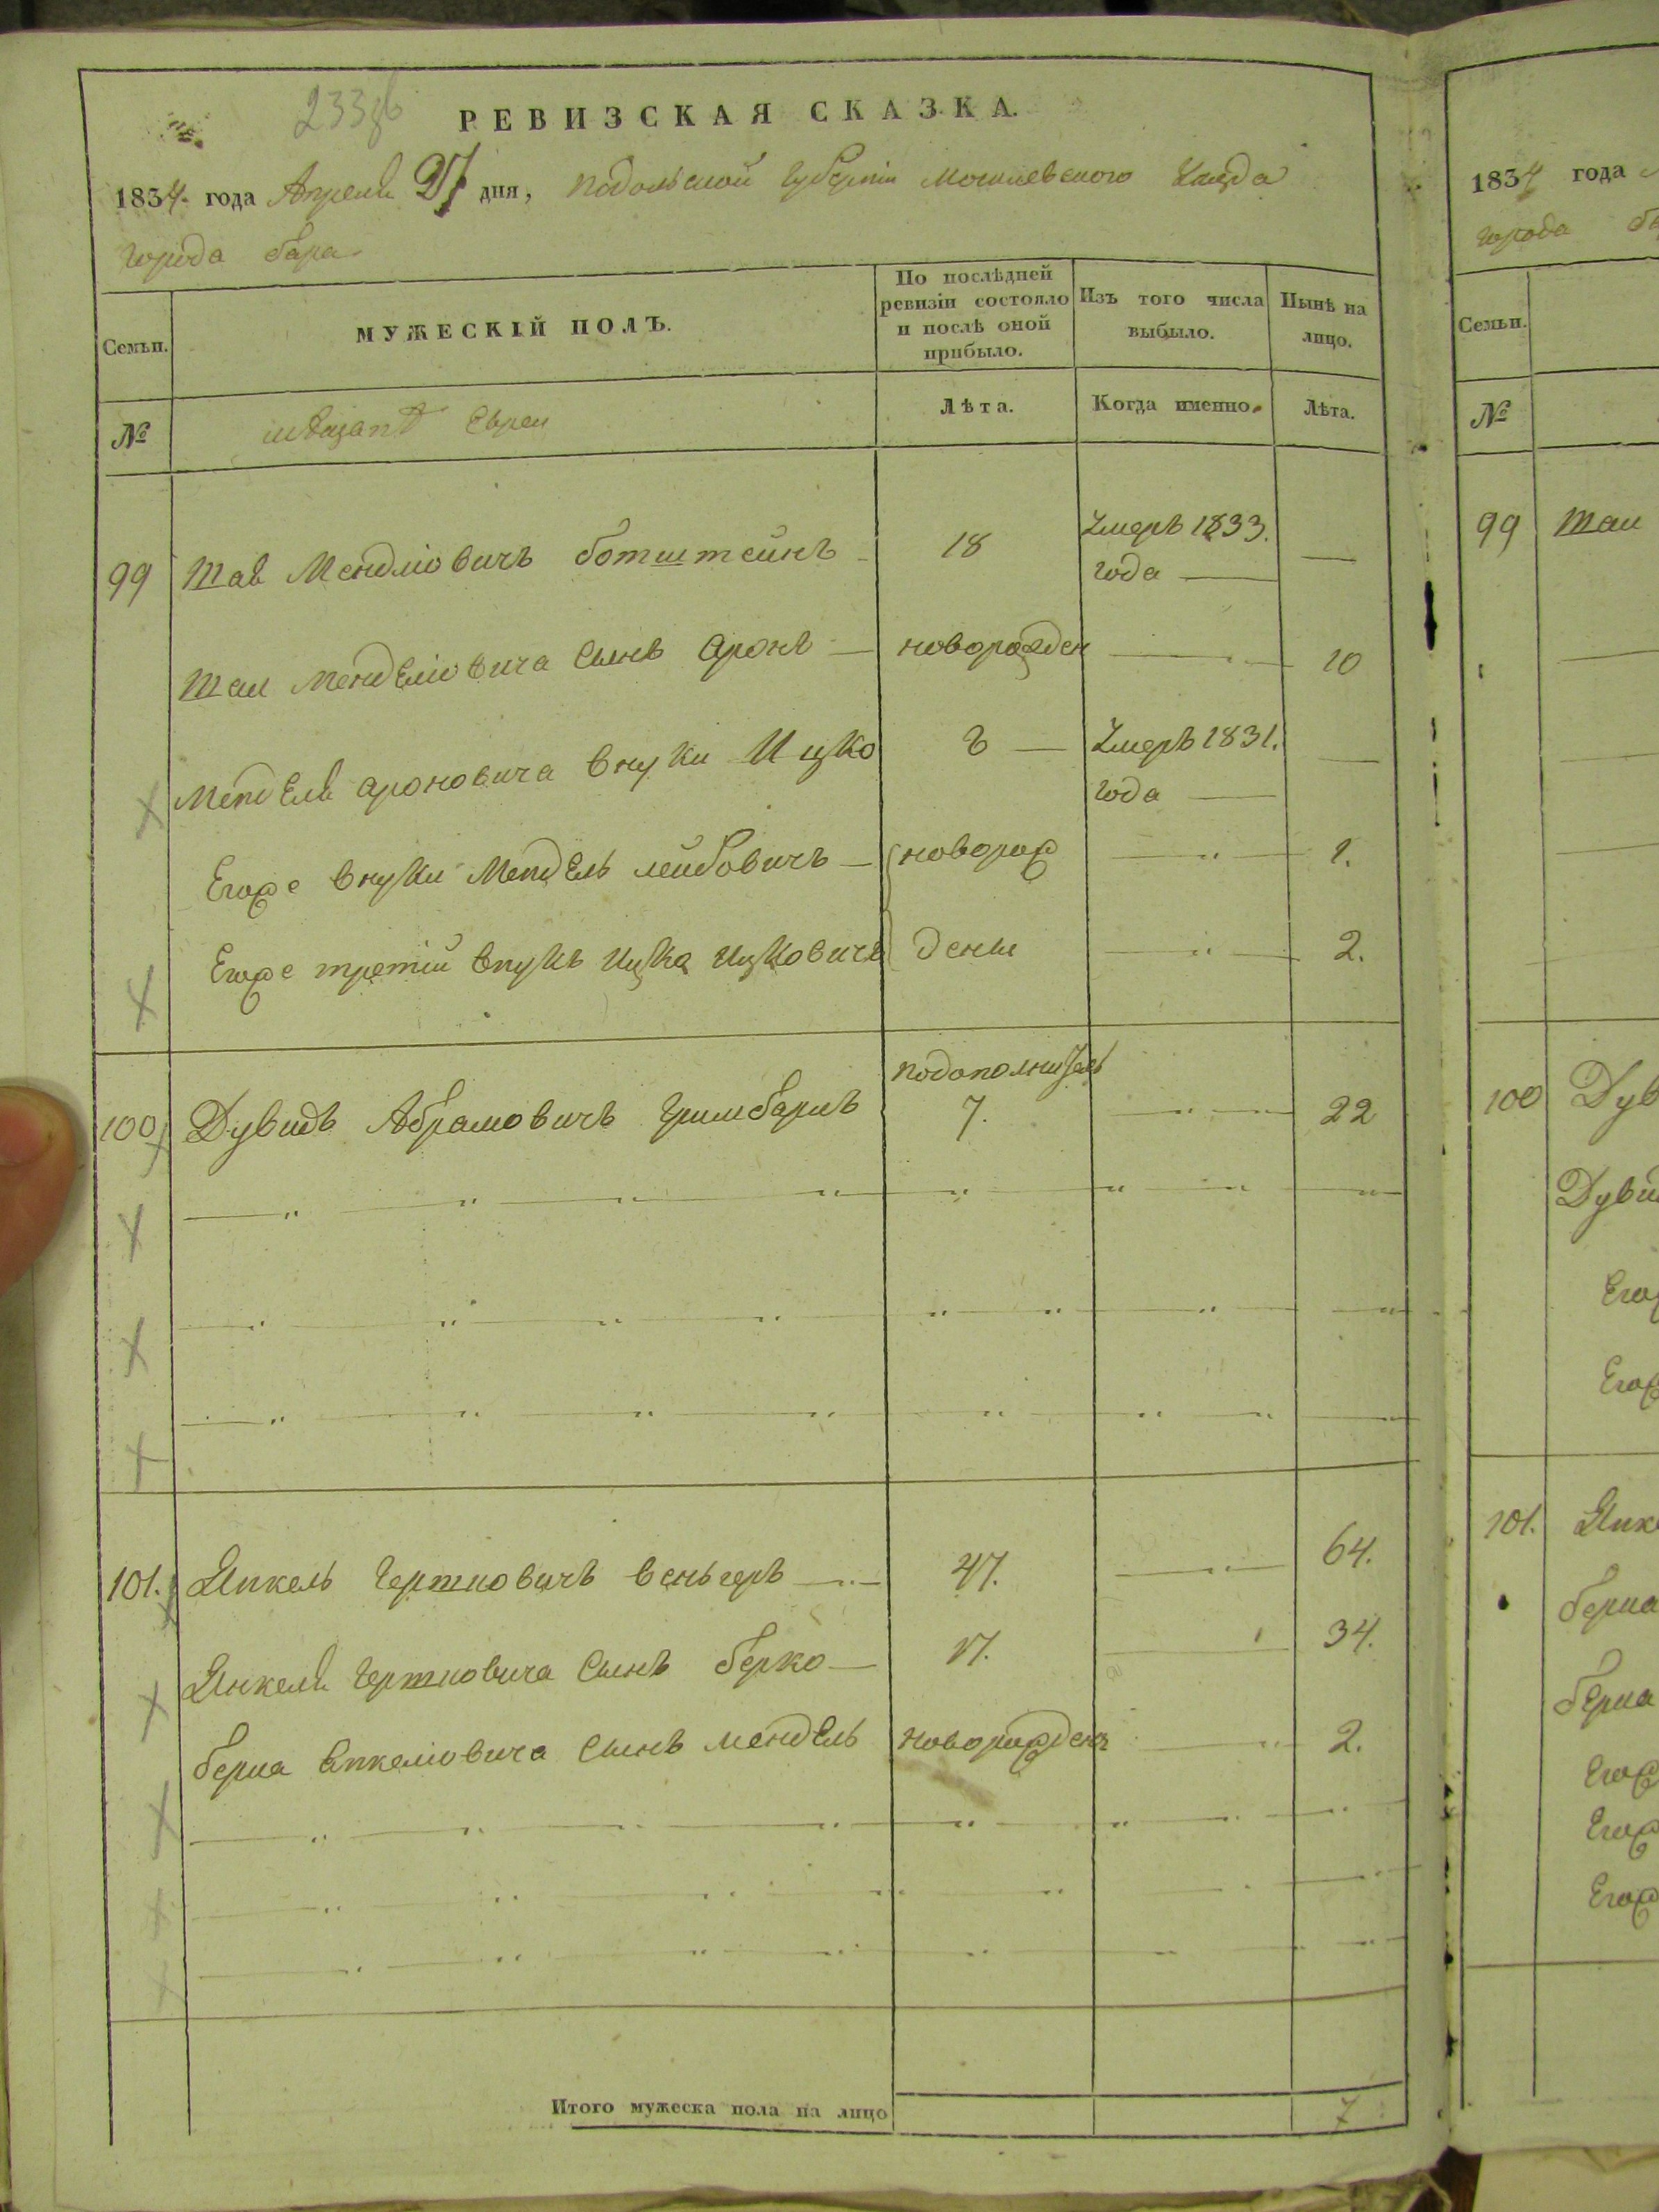 233
РЕВИЗСКАЯ СКАЗКА.
1834 года Апреля 27 дня, Подольской Губерніи Могилевского Уезда
города Бара
Семьи.
МУЖЕСКІЙ ПОЛЪ.
По послѣдней ревизіи состояло и послѣ оной прибыло.
Изъ того числа выбыло.
Нынѣ на лицо.
№
Евреи
Лѣта.
Когда именно.
Лѣта.
99 Мендліовичъ ботштейнъ 18 Умеръ 1833. года —
Менделіовича Сынъ Аронъ — новорожден — 10
Менделя Ароновича внуки Ицко 8 — Умеръ 1831. года —
Егоже внуки Мендель лейбовичъ — новорож — 1.
Егоже третій внукъ Ицка Ицковичъ денные — 2.
100 Дувидъ Абрамовичъ Гринбарнъ подополнитель 7. — 22
101. Янкель Гершковичъ веньгеръ — 47. — 64.
Янкеля Гершковича Сынъ Берко — 17. — 34.
Берка Янкеліовича Сынъ Мендель новорожденъ — 2.
Итого мужеска пола на лицо 7
1834 года
города
Семьи.
№
99
100 Дув
Дуви
Его
Егож
101. Янк
Берка
Берка
Егож
Егож
Егож